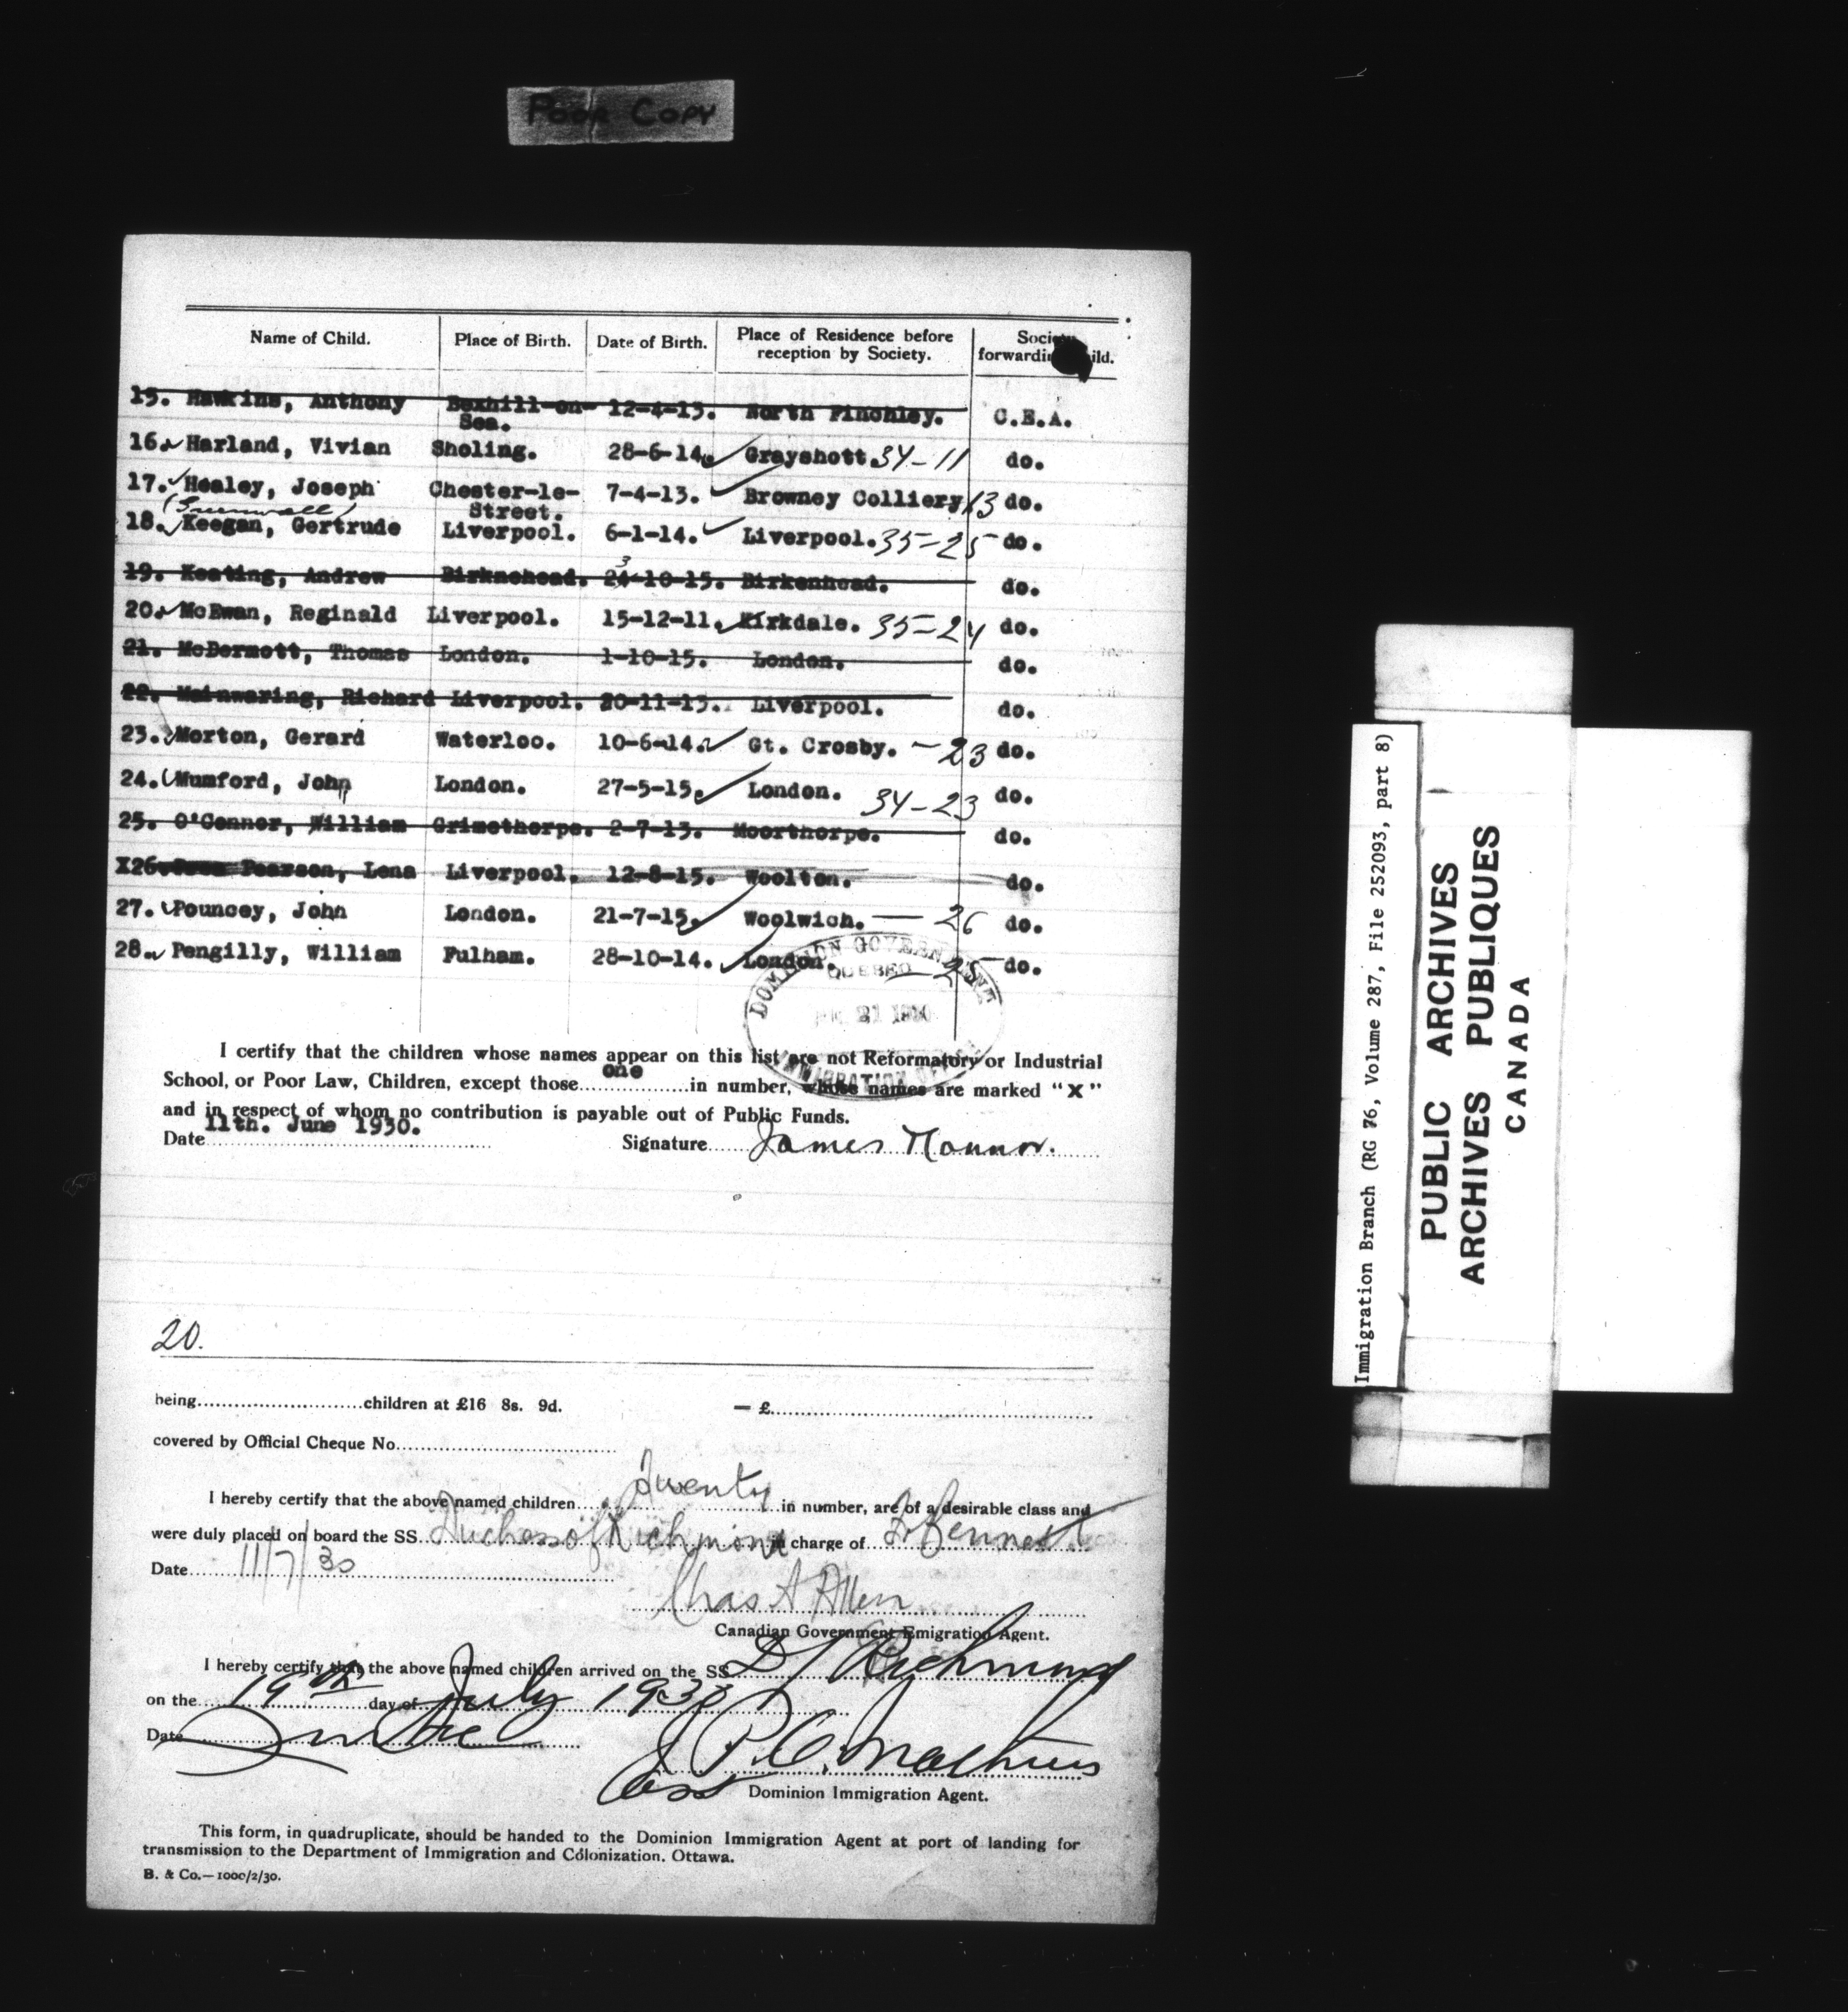 POOR COPY
Name of Child. Place of Birth. Date of Birth. Place of Residence before reception by Society. Society forwarding Child.
15. Hawkins, Anthony Bexhill-on-Sea. 12-4-15. North Finchley. C.E.A.
16. Harland, Vivian Sholing. 28-6-14. Grayshott 34-11 do.
17. Healey, Joseph Chester-le-Street. 7-4-13. Browney Colliery 13 do.
18. Keegan, Gertrude Liverpool. 6-1-14. Liverpool. 35-25 do.
19. Keating, Andrew Birknehead. 23-10-15. Birkenhead. do.
20. McEwan, Reginald Liverpool. 15-12-11. Kirkdale. 35-24 do.
21. McDermott, Thomas London. 1-10-15. London. do.
22. Mainwaring, Richard Liverpool. 20-11-15. Liverpool. do.
23. Morton, Gerard Waterloo. 10-6-14. Gt. Crosby. - 23 do.
24. Mumford, John London. 27-5-15. London. 34-23 do.
25. O'Connor, William Grimethorpe. 2-7-13. Moorthorpe. do.
X26. Pearson, Lena Liverpool. 12-8-15. Woolton. do.
27. Pouncey, John London. 21-7-15. Woolwich. — 26 do.
28. Pengilly, William Fulham. 28-10-14. London. — 25 do.
DOMINION GOVERNMENT
QUEBEC
21 1930
IMMIGRATION OFFICE
I certify that the children whose names appear on this list are not Reformatory or Industrial
School, or Poor Law, Children, except those one in number, whose names are marked "X"
and in respect of whom no contribution is payable out of Public Funds.
Date 11th. June 1930. Signature James
20.
being children at £16 8s. 9d. — £
covered by Official Cheque No.
I hereby certify that the above named children twenty in number, are of a desirable class and
were duly placed on board the SS. Duchess of Richmond in charge of Bennett
Date 11/7/30
Chas A Allen
Canadian Government Emigration Agent.
I hereby certify that the above named children arrived on the SS. D/ Richmond
on the 19th day of July 1930
Date Quebec
Asst Dominion Immigration Agent.
This form, in quadruplicate, should be handed to the Dominion Immigration Agent at port of landing for
transmission to the Department of Immigration and Colonization, Ottawa.
B. & Co.—1000/2/30.
Immigration Branch (RG 76, Volume 287, File 252093, part 8)
PUBLIC ARCHIVES
ARCHIVES PUBLIQUES
CANADA